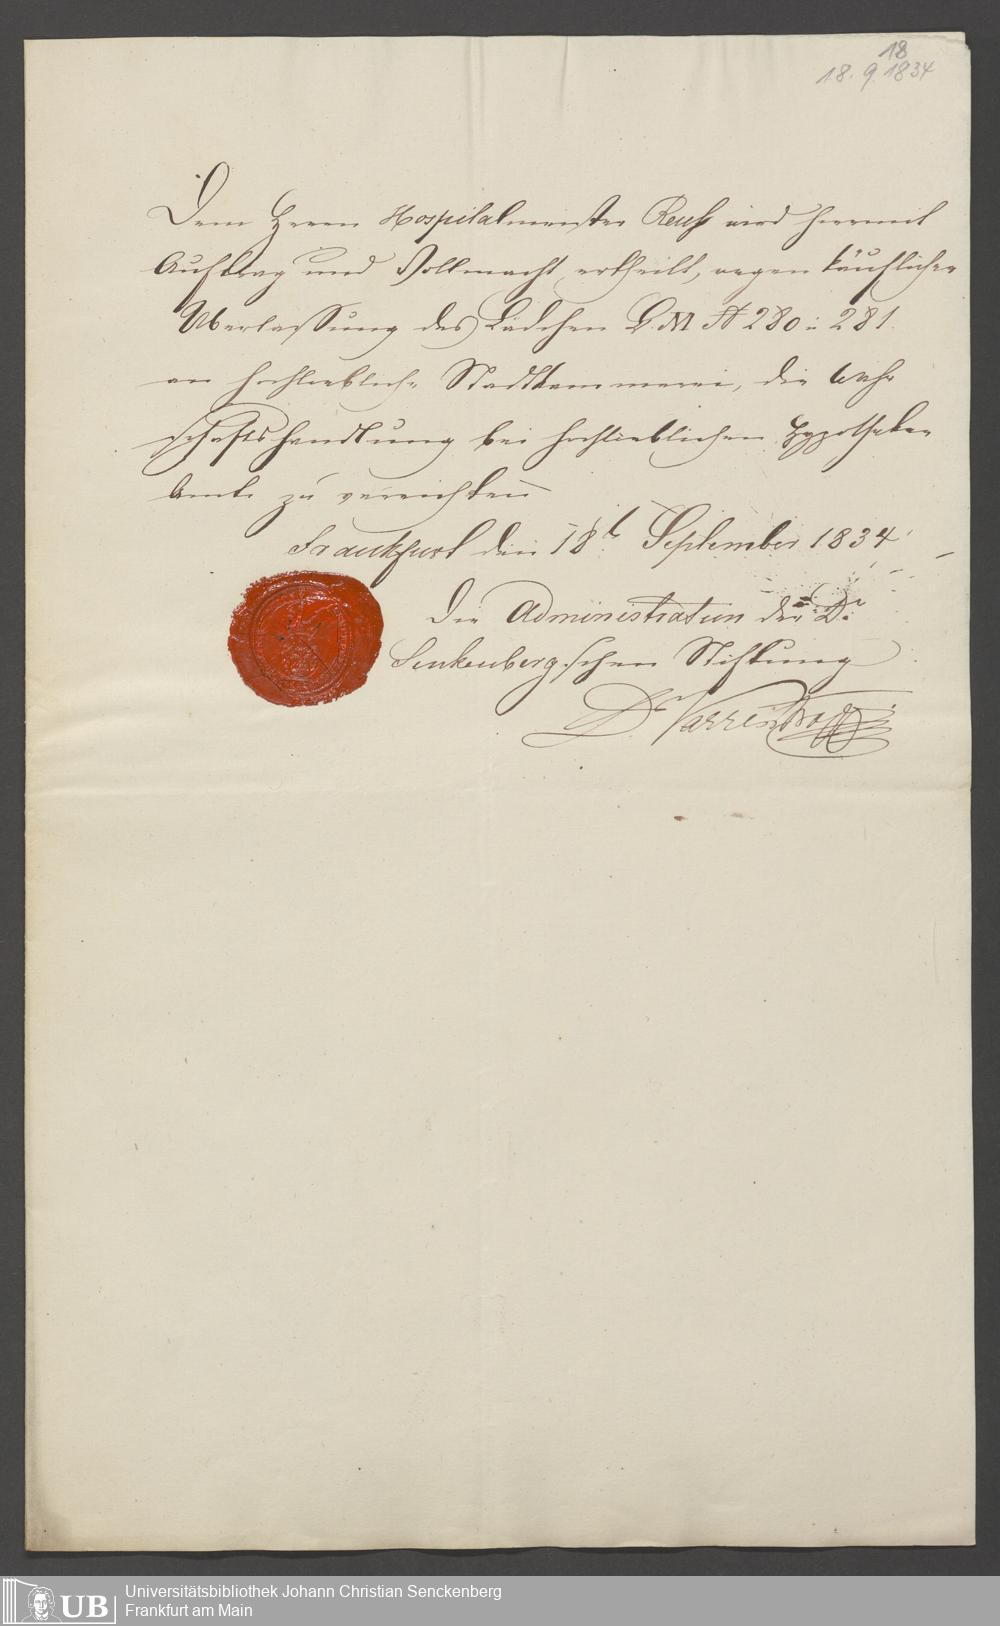 18
18. 9. 1834
Dem Herrn Hospitalmeister Reuß wird hiermit
Auftrag und Vollmacht ertheilt, wegen käuflicher
Uberlassung des Lädchen L. M № 280 u 281.
an hochlöbliche Stadtkämmerei, die Währ
schaftshandlung bei hochlöblichem Hypotheken
Amte zu verrichten
Frankfurt den 18t. September 1834
Die Administration der Dr.
Senkenbergschen Stiftung
Dr. Varrentrapp
UB
Universitätsbibliothek Johann Christian Senckenberg
Frankfurt am Main